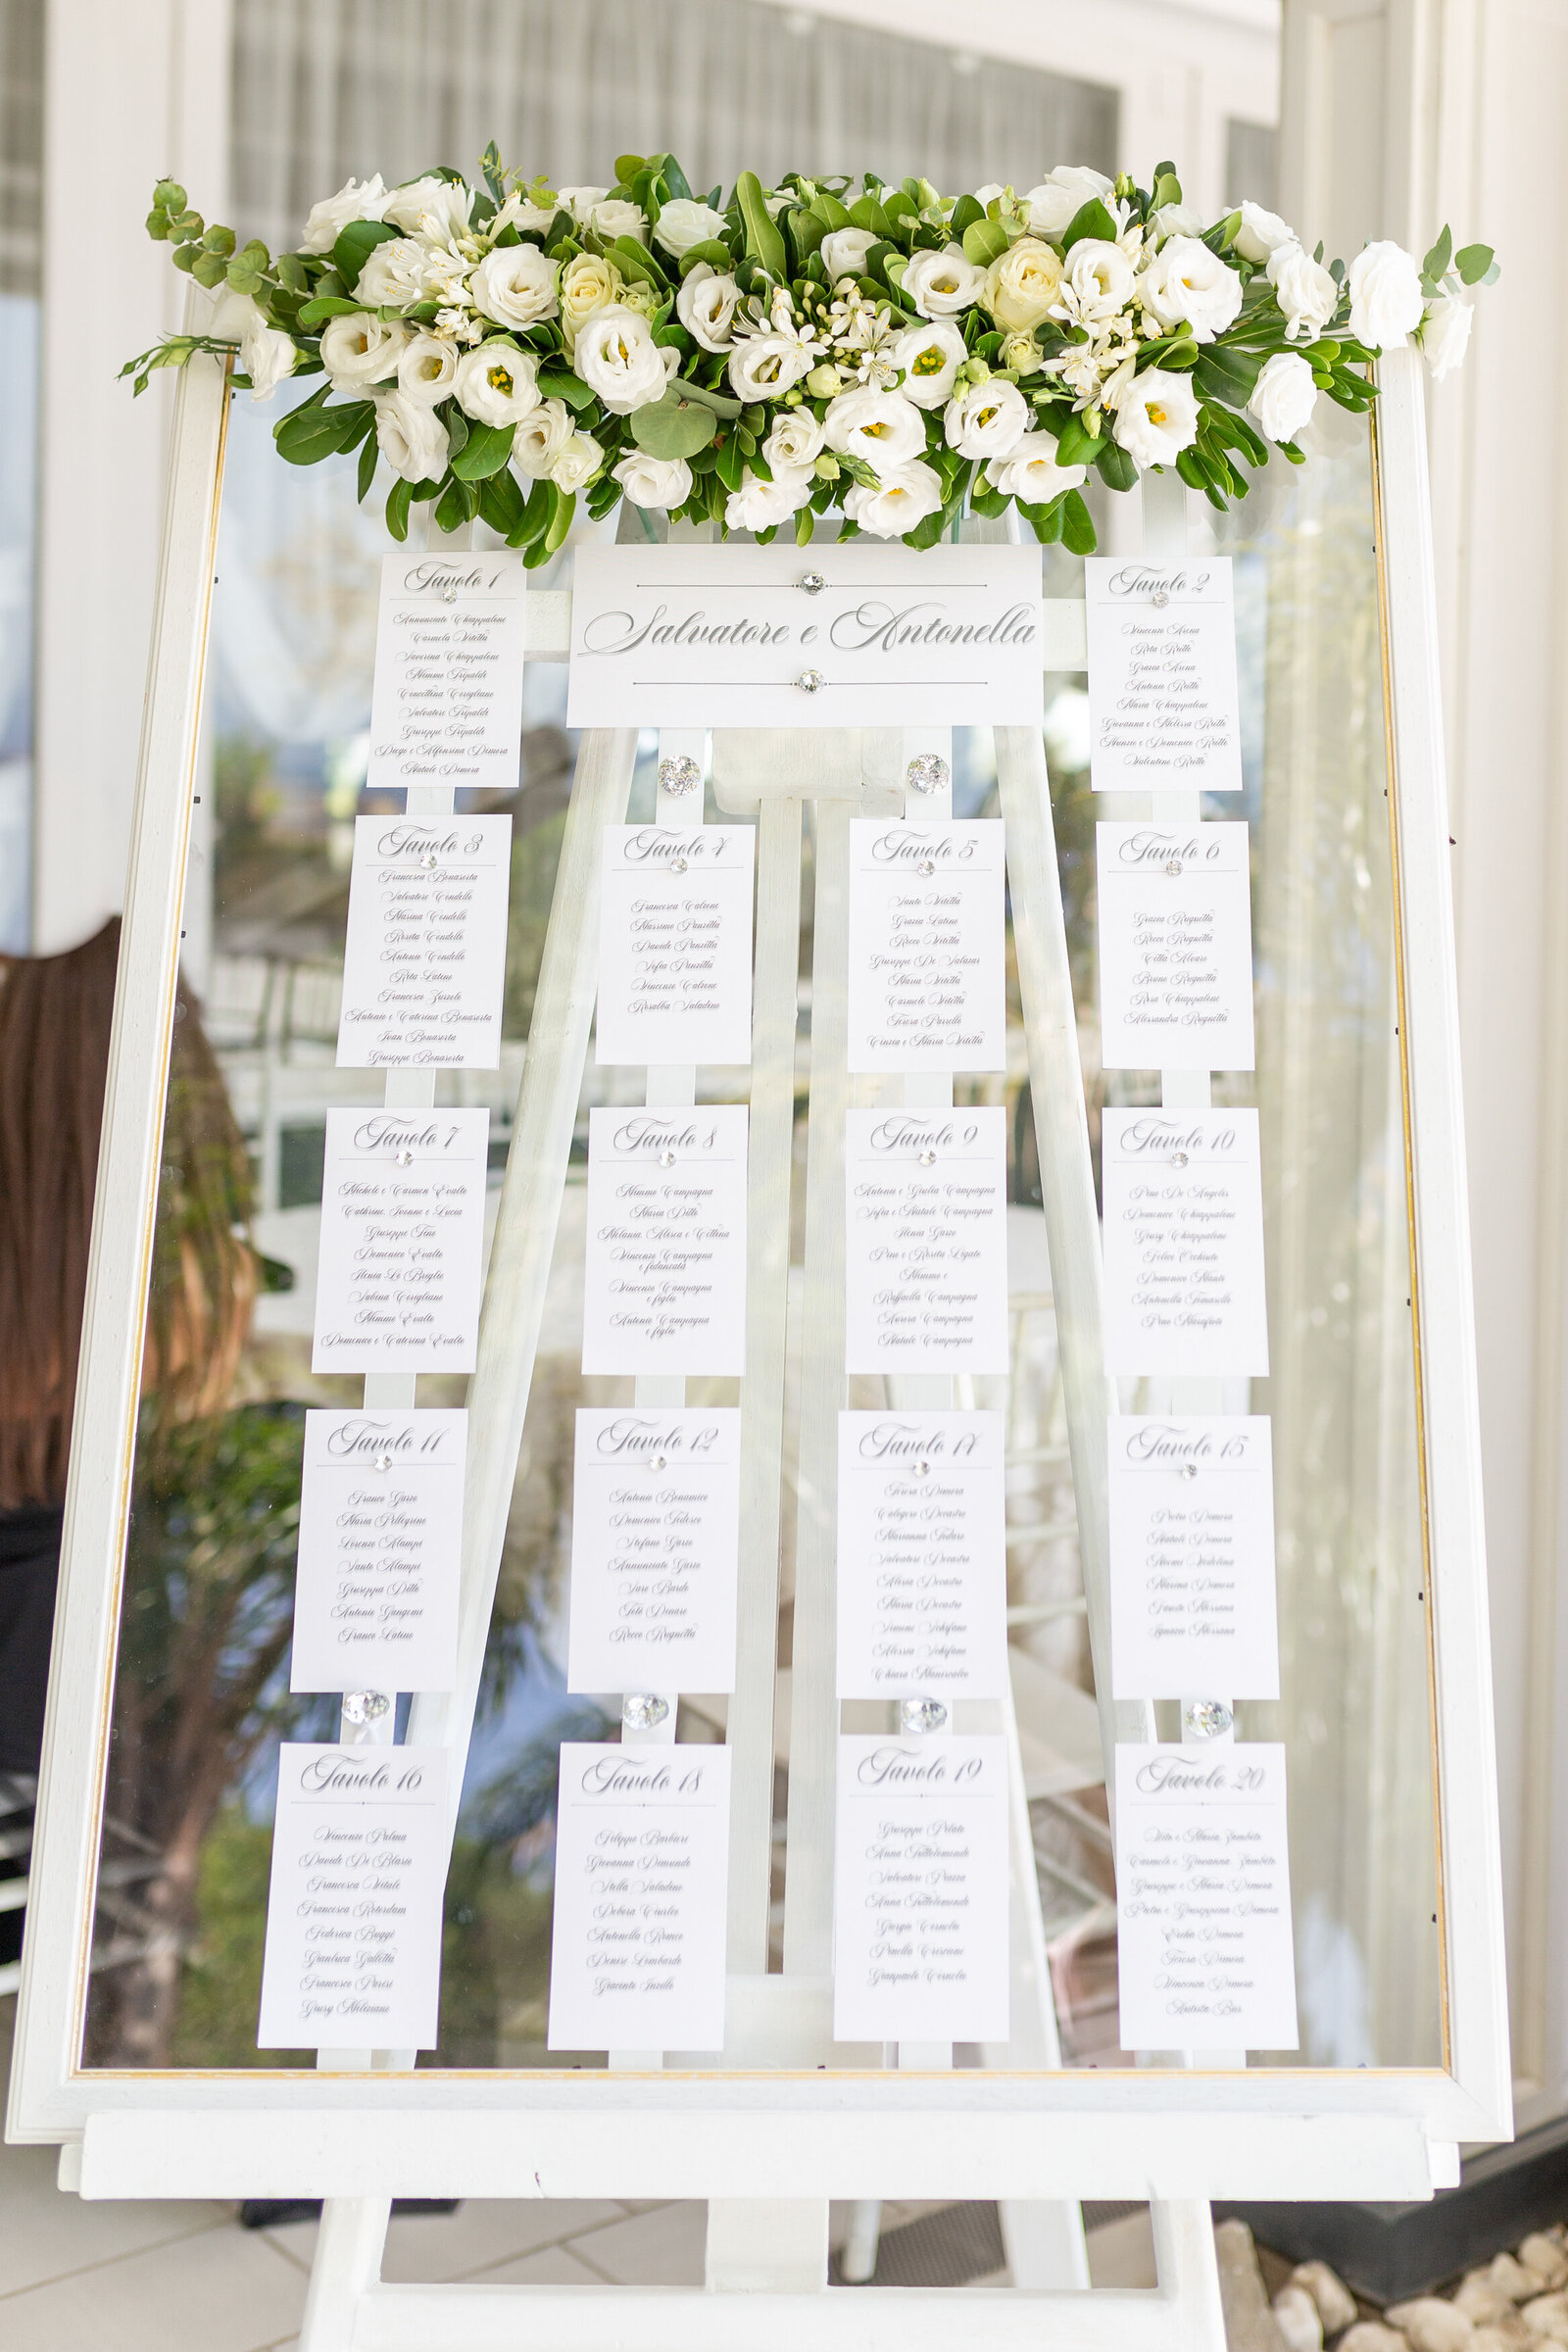 Tavolo 1
Annunziato Chiappalone
Carmela Vitellà
Saverina Chiappalone
Mimmo Tripaldi
Concettina Corigliano
Salvatore Tripaldi
Giuseppe Tripaldi
Diego e Alfonsina Dimora
Natale Dimora
Salvatore e Antonella
Tavolo 2
Vincenzo Arena
Rita
Grazia Arena
Antonio
Maria Chiappalone
Giovanna e Melissa
e Domenico
Valentino
Tavolo 3
Francesca Bonasorta
Salvatore Condello
Marina Condello
Rosita Condello
Antonio Condello
Rita Latino
Francesco
Antonio e Caterina Bonasorta
Ivan Bonasorta
Giuseppe Bonasorta
Tavolo 4
Francesca Calzone
Massimo Panzitta
Davide Panzitta
Sofia Panzitta
Vincenzo Calzone
Rosalba Saladino
Tavolo 5
Santo Vitellà
Grazia Latino
Rocco Vitellà
Giuseppe De Salazar
Maria Vitellà
Carmelo Vitellà
Teresa Parrello
Cinzia e Maria Vitellà
Tavolo 6
Grazia Rugnetta
Rocco Rugnetta
Alvaro
Bruno Rugnetta
Rosa Chiappalone
Alessandra Rugnetta
Tavolo 7
Michele e Carmen Evalto
Cathrine, Ivonne e Lucia
Giuseppe Fino
Domenico Evalto
Ilenia Lo Briglio
Sabina Corigliano
Mimmo Evalto
Domenico e Caterina Evalto
Tavolo 8
Mimmo Campagna
Maria Ditto
Melania, Alesca e Cettina
Vincenzo Campagna
e fidanzata
Vincenzo Campagna
e figlio
Antonio Campagna
e figlio
Tavolo 9
Antonio e Giulia Campagna
Sofia e Natale Campagna
Ilenia Garzo
Pino e Rosita Ligato
Mimmo e
Raffaella Campagna
Aurora Campagna
Natale Campagna
Tavolo 10
Pina De Angelis
Domenico Chiappalone
Giusy Chiappalone
Felice Occhiuto
Domenico
Antonella Tomaselli
Pino
Tavolo 11
Franco Garzo
Maria Pellegrino
Lorenzo Alampi
Santo Alampi
Giuseppa Ditto
Antonio Gangemi
Franco Latino
Tavolo 12
Antonio Bonamico
Domenico Tedesco
Stefano Garzo
Annunziato Garzo
Saro Barilo
Totò Denaro
Rocco Rugnetta
Tavolo 14
Teresa Dimora
Calogero Decastro
Marianna Todaro
Salvatore Decastro
Alessia Decastro
Maria Decastro
Simone Schifano
Alessia Schifano
Chiara Maniscalco
Tavolo 15
Pietro Dimora
Natalè Dimora
Noemi
Marina Dimora
Messana
Ignazio Messana
Tavolo 16
Vincenzo Palma
Davide Di Blasio
Francesca Vitale
Francesca Roterdam
Federica Buggè
Gianluca Galletta
Francesco Parisi
Giusy Meliciano
Tavolo 18
Filippo Barbieri
Giovanna Demundo
Stella Saladino
Debora Ciurleo
Antonella Romeo
Denise Lombardo
Giacinto Inzillo
Tavolo 19
Giuseppe Pilato
Anna Tuttolomondo
Salvatore Piazza
Anna Tuttolomondo
Giorgia Cernola
Pinella Crescenzi
Gianpaolo Cernola
Tavolo 20
Vito e Maria Zambito
Carmelo e Giovanna Zambito
Giuseppe e Maria Dimora
Pietro e Giuseppina Dimora
Ersilia Dimora
Teresa Dimora
Vincenza Dimora